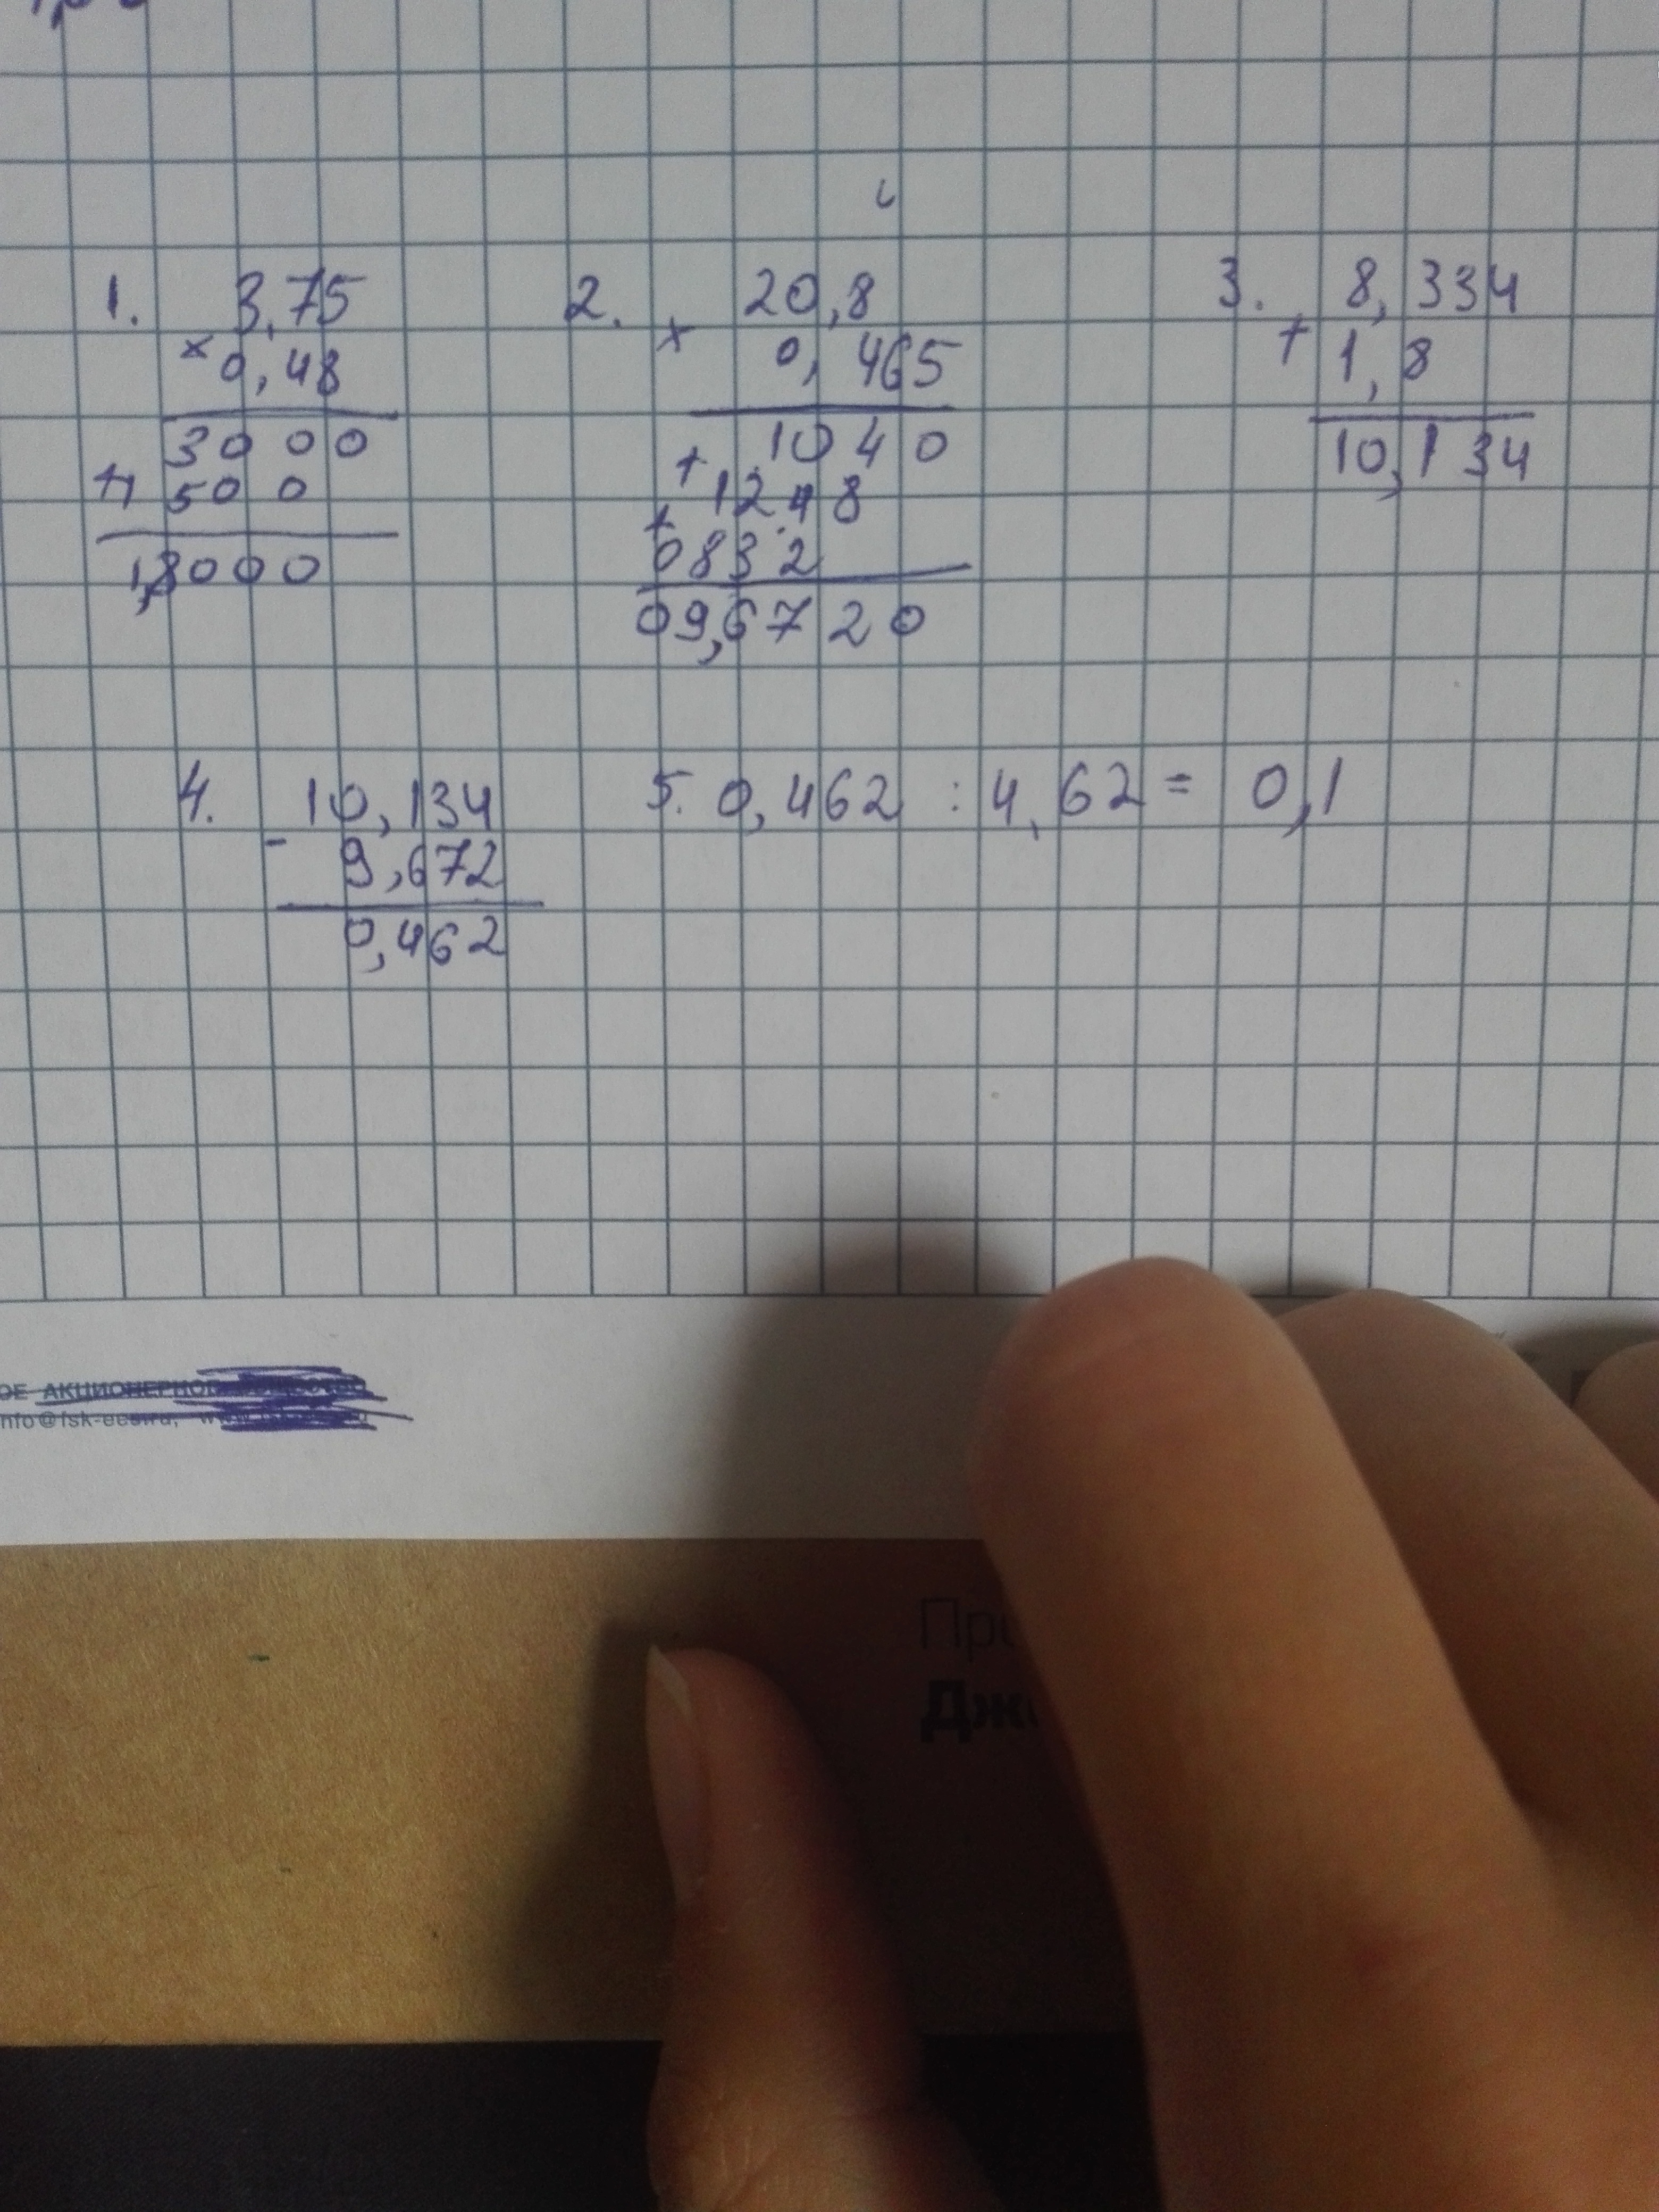 1. 3,75
× 0,48
3000
+1500
1,8000
2. 20,8
× 0,465
1040
+ 1248
+ 0832
09,6720
3. 8,334
+ 1,8
10,134
4. 10,134
- 9,672
0,462
5. 0,462 : 4,62 = 0,1
ОЕ АКЦИОНЕРНОЕ
nfo@fsk-ees.ru,